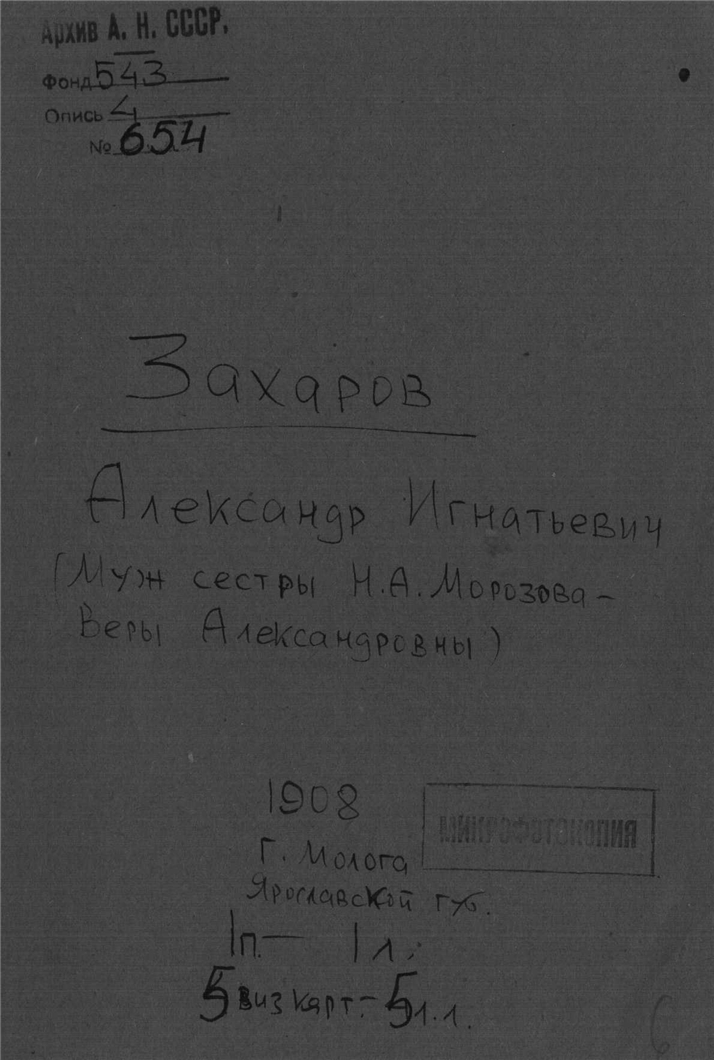 Архив А. Н. СССР.
Фонд 543
Опись 4
№ 654
Захаров
Александр Игнатьевич
(Муж сестры Н.А. Морозова –
Веры Александровны)
1908
МИКРОФОТОКОПИЯ
г. Молога
Ярославской губ.
1 п. — 1 л.
5 виз карт. – 5 л.л.
6